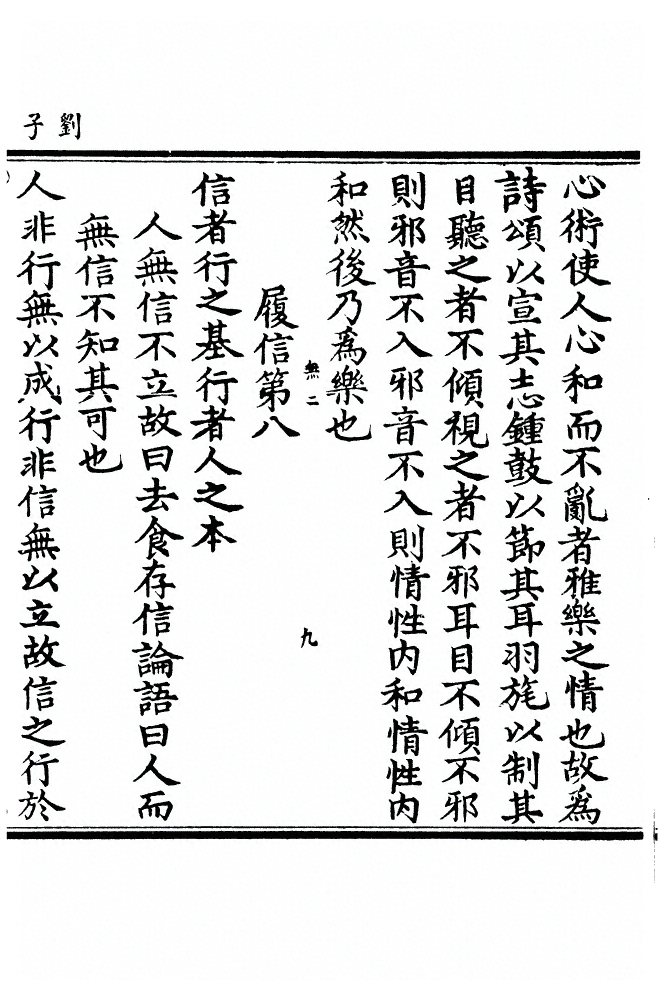 劉子
心術使人心和而不亂者雅樂之情也故爲
詩頌以宣其志鍾鼓以節其耳羽旄以制其
目聽之者不傾視之者不邪耳目不傾不邪
則邪音不入邪音不入則情性内和情性内
和然後乃爲樂也
無二
九
履信第八
信者行之基行者人之本
人無信不立故曰去食存信論語曰人而
無信不知其可也
人非行無以成行非信無以立故信之行於